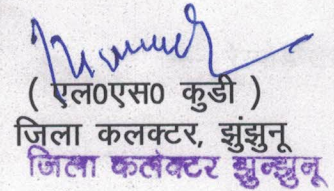 ( एल0एस0 कुडी )
जिला कलक्टर, झुंझुनू
जिला कलेक्टर झुन्झुनू